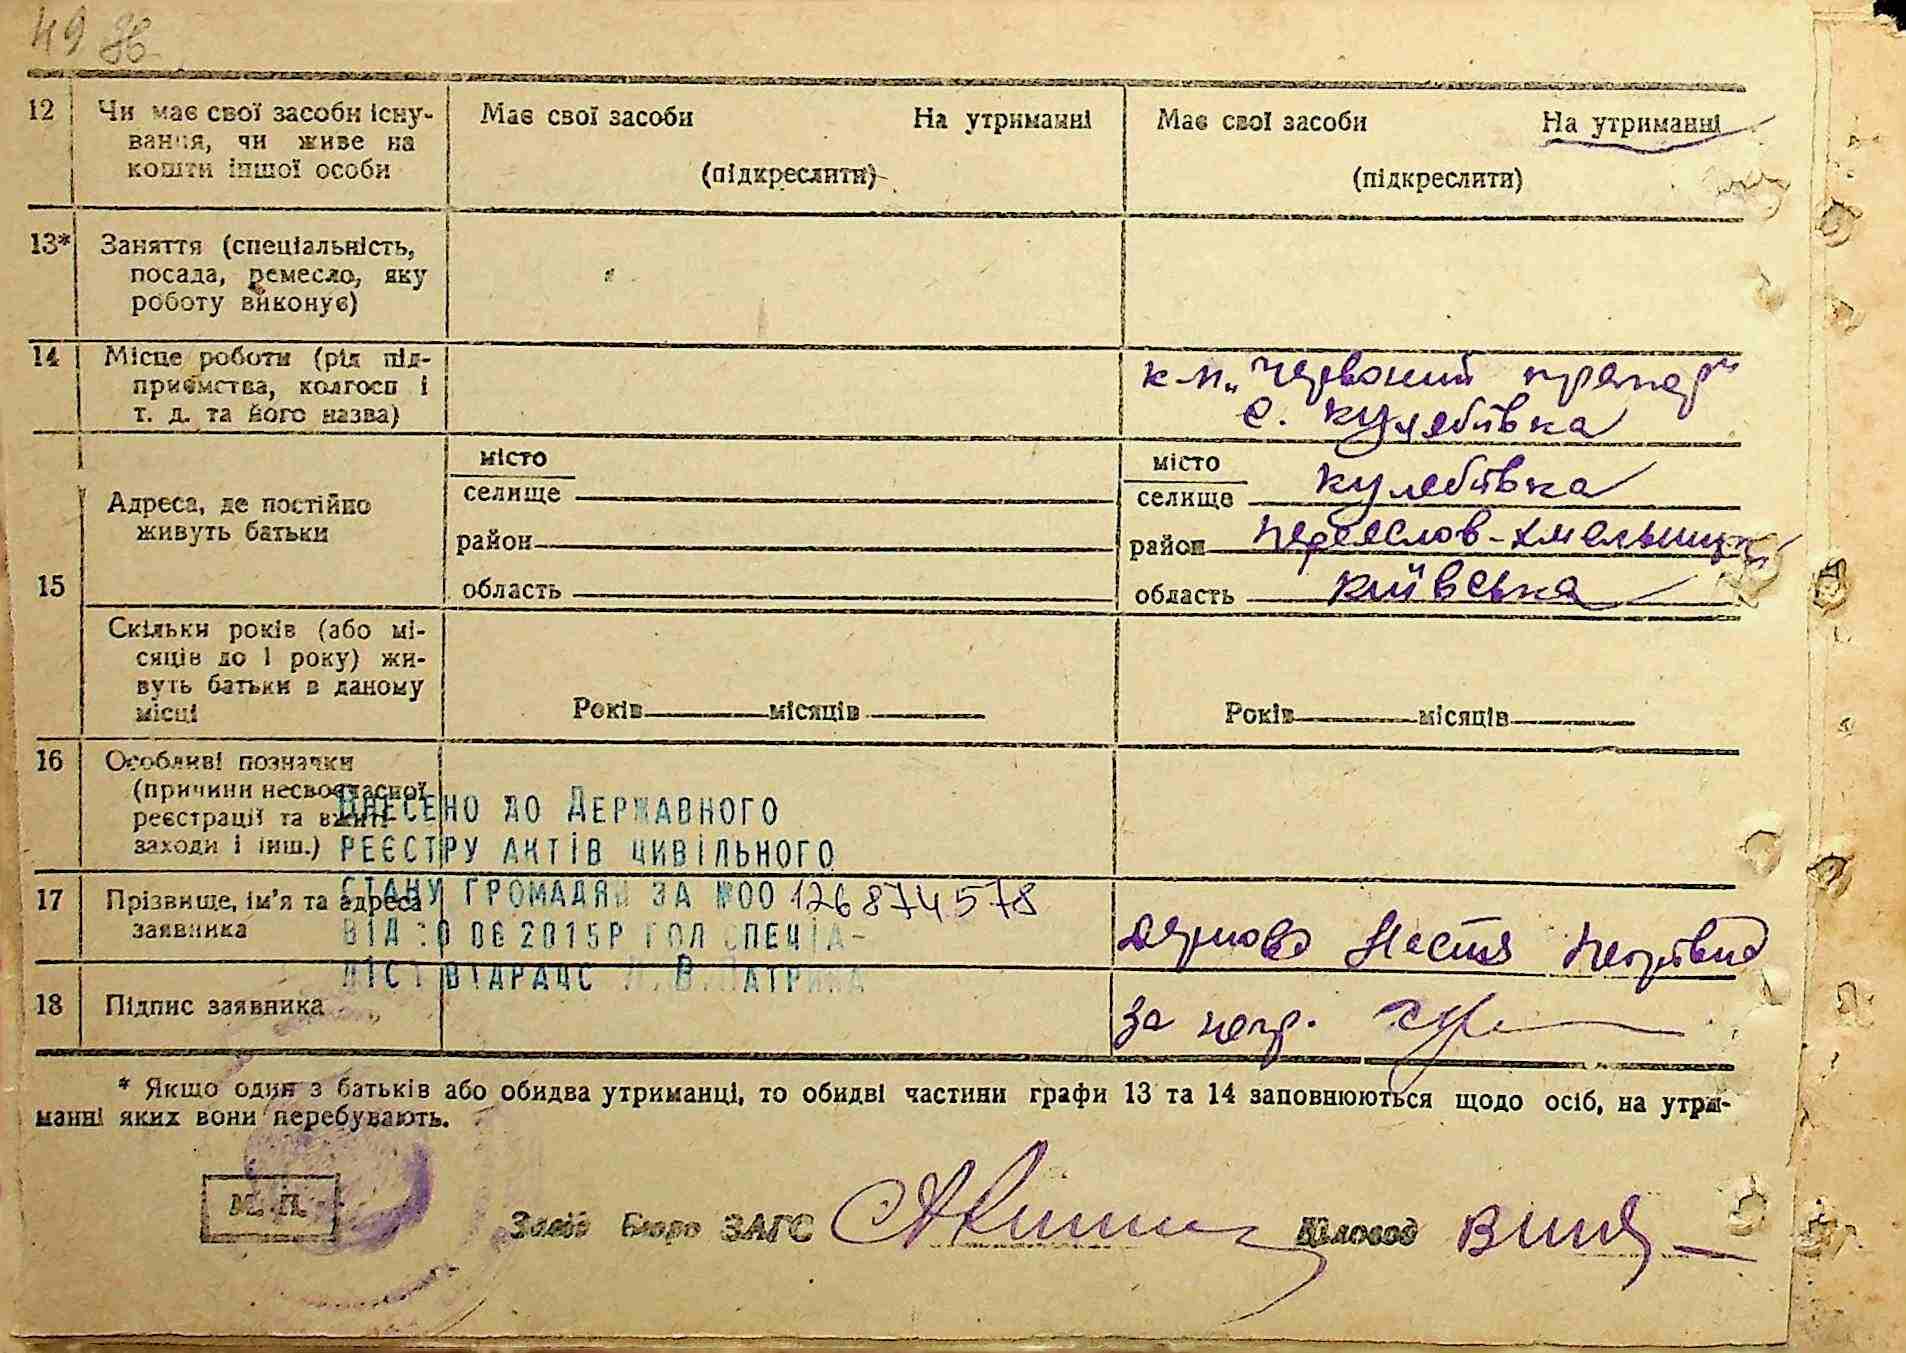 49
12 Чи має свої засоби існу-
вання, чи живе на
кошти іншої особи
Має свої засоби На утриманні
(підкреслити)
Має свої засоби На утриманні
(підкреслити)
13* Заняття (спеціальність,
посада, ремесло, яку
роботу виконує)
14 Місце роботи (рід під-
приємства, колгосп і
т. д. та його назва)
к-п „Червоний прапор"
с. Кулябівка
15 Адреса, де постійно
живуть батьки
місто
селище
район
область
місто
селище Кулябівка
район Переяслов-Хмельницьк
область Київська
Скільки років (або мі-
сяців до 1 року) жи-
вуть батьки в даному
місці
Років місяців
Років місяців
16 Особливі позначки
(причини несвоєчасної
реєстрації та вжиті
заходи і інш.)
ВНЕСЕНО ДО ДЕРЖАВНОГО
РЕЄСТРУ АКТІВ ЦИВІЛЬНОГО
СТАНУ ГРОМАДЯН ЗА №00126874578
ВІД 06 2015Р ГОЛ СПЕЦІА-
ЛІСТ ВІДРАЦС В.
17 Прізвище, ім'я та адреса
заявника
Настя Петрівна
18 Підпис заявника
За
* Якщо один з батьків або обидва утриманці, то обидві частини графи 13 та 14 заповнюються щодо осіб, на утри-
манні яких вони перебувають.
М. П.
Завід Бюро ЗАГС
Діловод